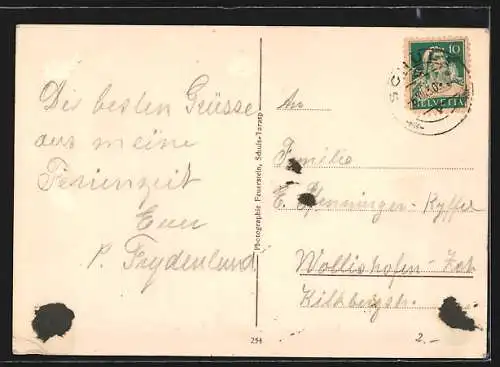 Die besten Grüsse
aus meine
Ferienzeit
Euer
P. Frydenlund
Photographie Feuerstein, Schuls-Tarasp
254
10
HELVETIA
An
Familie
E. Pfenninger-Ryffel
Wollishofen-Zch
Kilchbergstr.
2.-